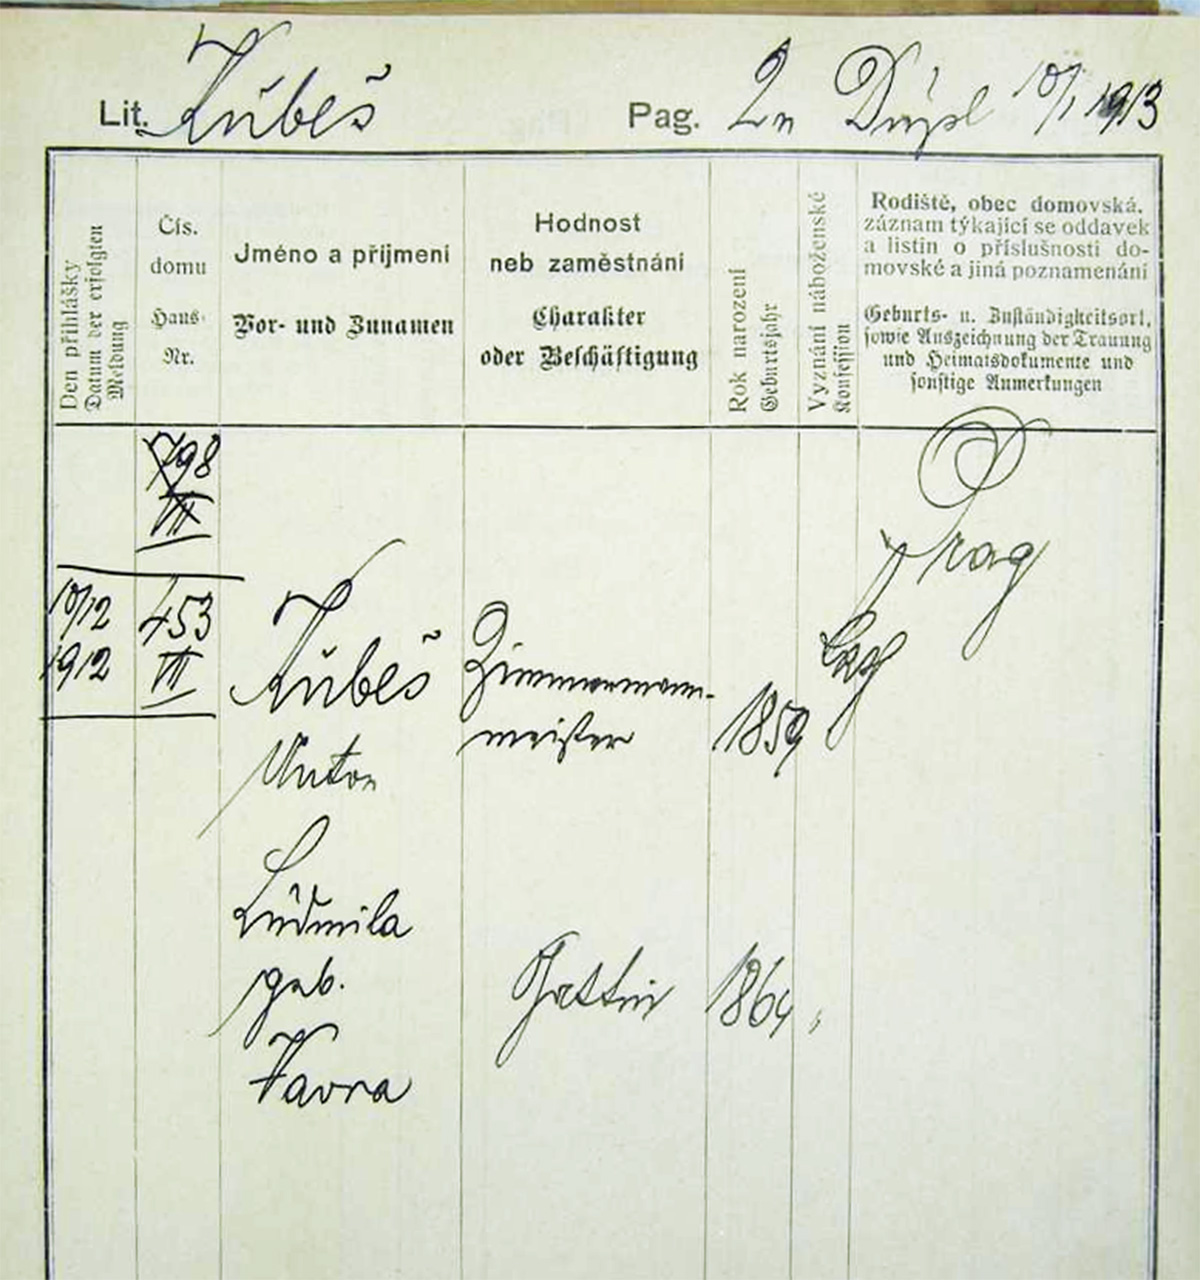 Lit. Kubeš Pag. 2n Dupl 10/1 1913
Den přihlášky
Datum der erfolgten
Meldung
Čís.
domu
Haus-
Nr.
Jméno a příjmení
Vor- und Zunamen
Hodnost
neb zaměstnání
Charakter
oder Beschäftigung
Rok narození
Geburtsjahr
Vyznání náboženské
Konfession
Rodiště, obec domovská,
záznam týkající se oddavek
a listin o příslušnosti do-
movské a jiná poznamenání
Geburts- u. Zuständigkeitsort,
sowie Auszeichnung der Trauung
und Heimatsdokumente und
sonstige Anmerkungen
798
VII
Prag
10/12
1912
453
VII
Kubeš
Anton
Zimmermann-
meister
1859
Ludmila
geb.
Vavra
Gattin
1864
"